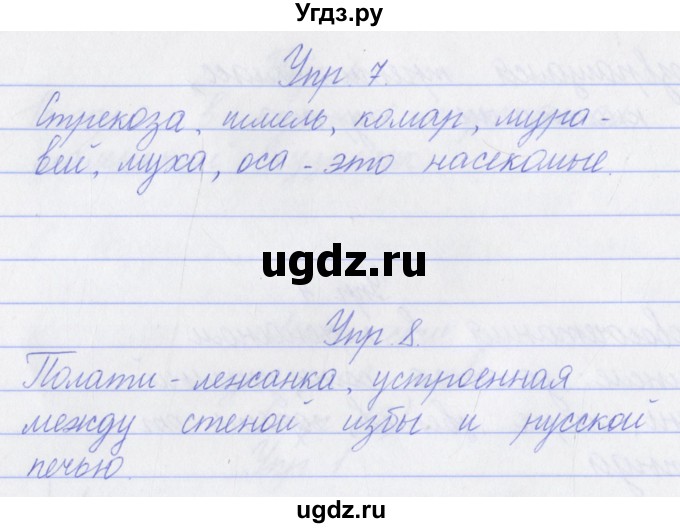 Угдз.ру
Упр. 7.
Стрекоза, шмель, комар, мура-
вей, муха, оса - это насекомые.
ugdz.ru
Упр 8.
Полати - лежанка, устроенная
между стеной избы и русской
печью.
ugdz.ru